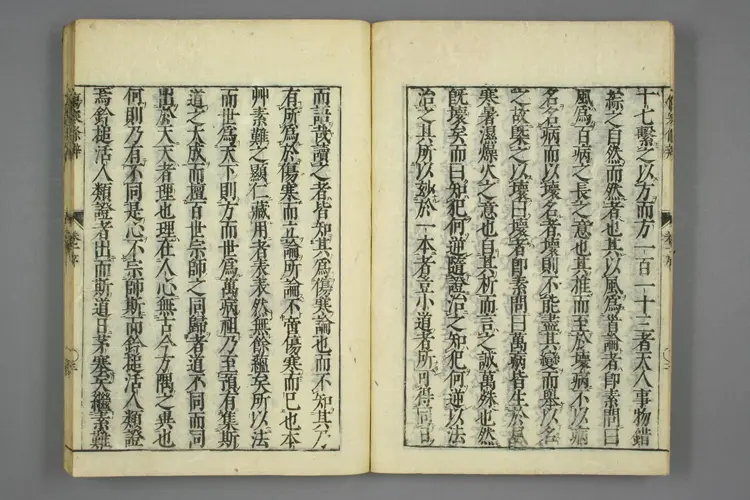 十七繫之以方而方一百一十三者天人事物錯
綜之自然而然者也其以風爲首論者卽素問曰
風爲百病之長之意也其推而至於壞病不以病
名名病而以壞名者壞則不能盡其變而舉以名
之故槩之以壞曰壞者卽素問曰萬病皆生於風
寒暑濕燥火之意也自其析而言之誠萬殊也然
旣壞矣而曰知犯何逆隨證治之知犯何逆以法
治之其所以妙於一本者豈小道者所可得同日
而語哉讀之者皆知其爲傷寒論也而不知其乃
有所爲於傷寒而立論所論不啻傷寒而已也本
艸素難之顯仁藏用者表表然無餘蘊矣所以法
而世爲天下則方而世爲萬病祖乃至預有集斯
道之大成而擅百世宗師之同歸者道不同而同
出於天天者理也理在人心無古今方隅之異也
何則乃有不同是心不宗師斯而鈐槌活人類證
焉鈐槌活人類證者出而斯道日茅塞矣繼素難
傷寒條辨